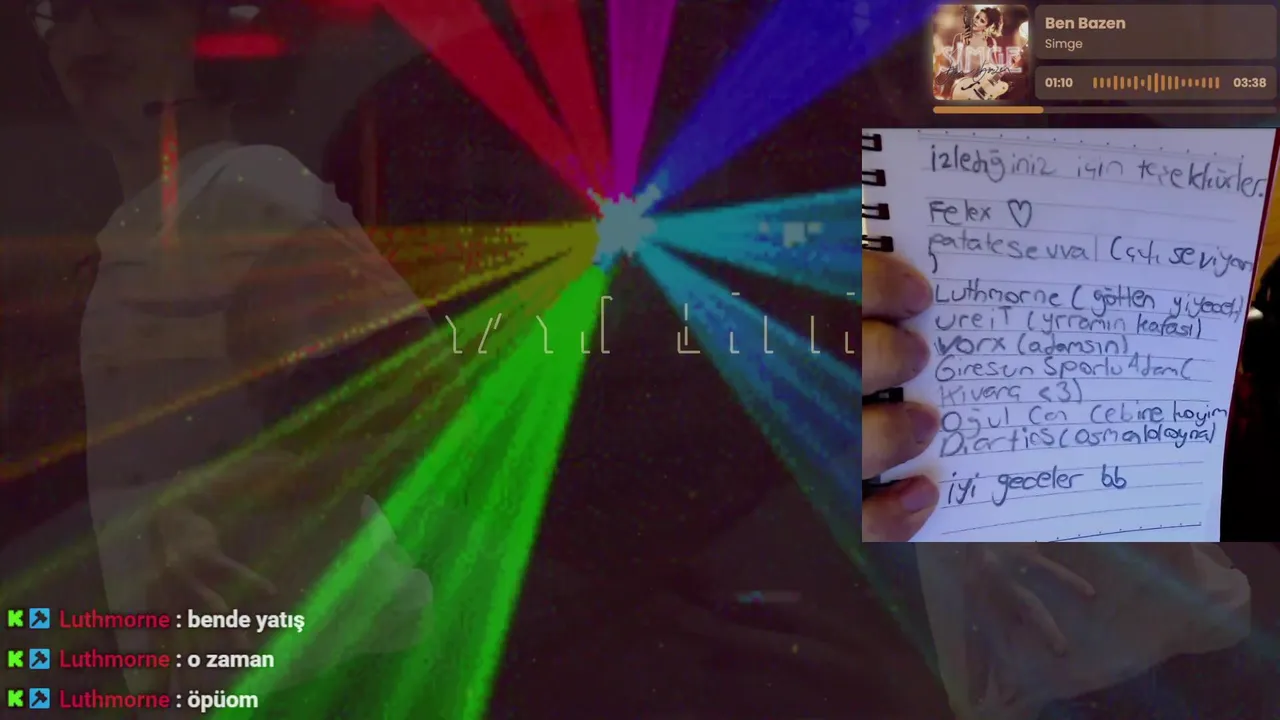 Ben Bazen
Simge
SIMGE
01:10
03:38
izlediğiniz için teşekkürler.
Felex ♡
patatesevval (çıtı seviyom
Luthmorne (götten yiyecek)
ureiT (yrramın kafası)
Vorx (adamsın)
Giresun Sporlu Adam (
Kıvanç <3)
Oğul Can Cebine koyim
iyi geceler bb
K Luthmorne : bende yatış
K Luthmorne : o zaman
K Luthmorne : öpüom